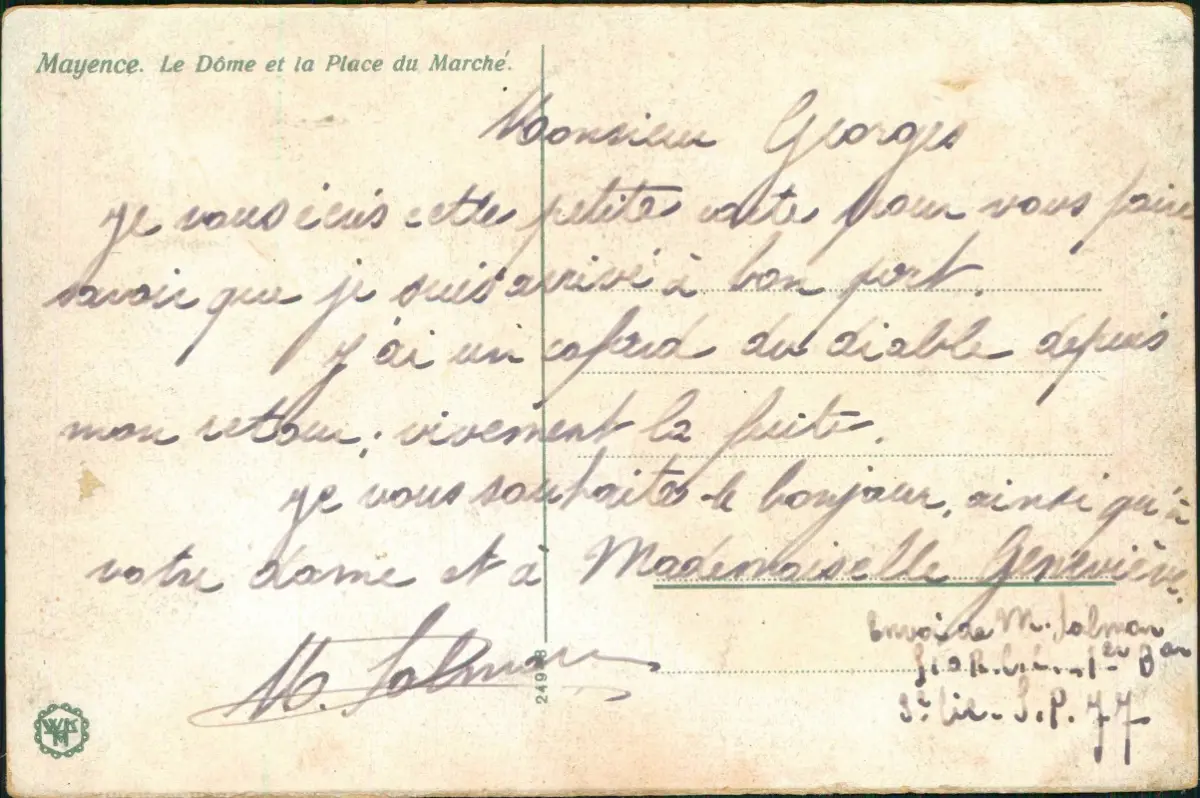 Mayence. Le Dôme et la Place du Marché.
Monsieur Georges
je vous écris cette petite carte pour vous faire
savoir que je suis arrivé à bon port.
J'ai un cafard du diable depuis
mon retour, vivement la fuite.
je vous souhaite le bonjour, ainsi qu'à
votre dame et à Mademoiselle Geneviève.
M. Salmon
Envoi de M. Salmon
1er Bon
3e Cie. S.P. 77
2498
WM